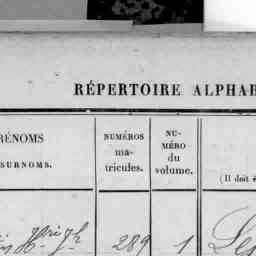 RÉPERTOIRE ALPHAB
RÉNOMS
SURNOMS.
NUMÉROS
ma-
tricules.
NU-
MÉRO
du
volume.
(Il doit é
289 1